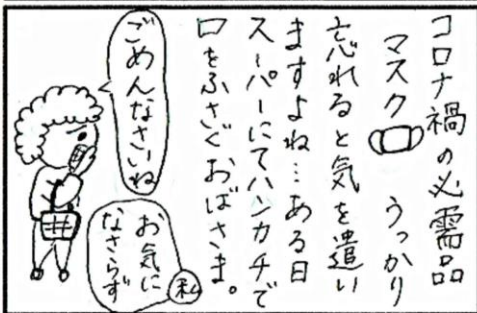 コロナ禍の必需品
マスク うっかり
忘れると気を遣い
ますよね…ある日
スーパーにてハンカチで
口をふさぐおばさま。
ごめんなさいね
お気に
なさらず
私